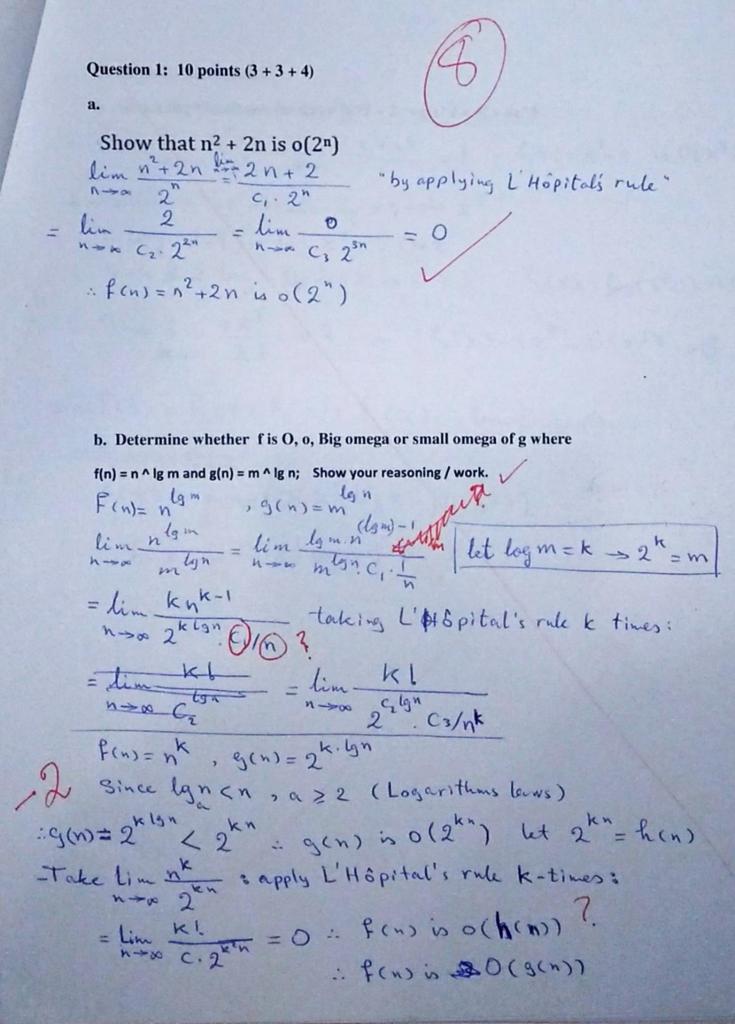 8
Question 1: 10 points (3 + 3 + 4)
a.
Show that n² + 2n is o(2ⁿ)
lim n→∞ (n²+2n)/2ⁿ = lim (2n+2)/(c₁·2ⁿ) "by applying L'Hôpital's rule"
= lim n→∞ 2/(C₂·2²ⁿ) = lim n→∞ 0/(C₃ 2³ⁿ) = 0
∴ f(n) = n²+2n is o(2ⁿ)
b. Determine whether f is O, o, Big omega or small omega of g where
f(n) = n ^ lg m and g(n) = m ^ lg n; Show your reasoning / work.
F(n) = n^(lg m) , g(n) = m^(lg n)
lim n→∞ n^(lg m)/m^(lg n) = lim n→∞ (lg m · n^((lg m)-1))/(m^(lg n) · C₁ · 1/n) let log m = k → 2^k = m
= lim n→∞ kn^(k-1)/(2^(k lg n) · C₁/n) ? taking L'Hôpital's rule k times:
= lim n→∞ k!/C₂^(lg n) = lim n→∞ k!/(2^(C₂ lg n) · C₃/n^k)
f(n) = n^k , g(n) = 2^(k·lg n)
-2 Since lg_a n < n , a ≥ 2 (Logarithms laws)
∴ g(n) = 2^(k lg n) < 2^(kn) ∴ g(n) is o(2^(kn)) let 2^(kn) = h(n)
-Take lim n→∞ n^k/2^(kn) : apply L'Hôpital's rule k-times:
= Lim n→∞ k!/(C·2^(k²n)) = 0 ∴ f(n) is o(h(n)) ?
∴ f(n) is O(g(n))